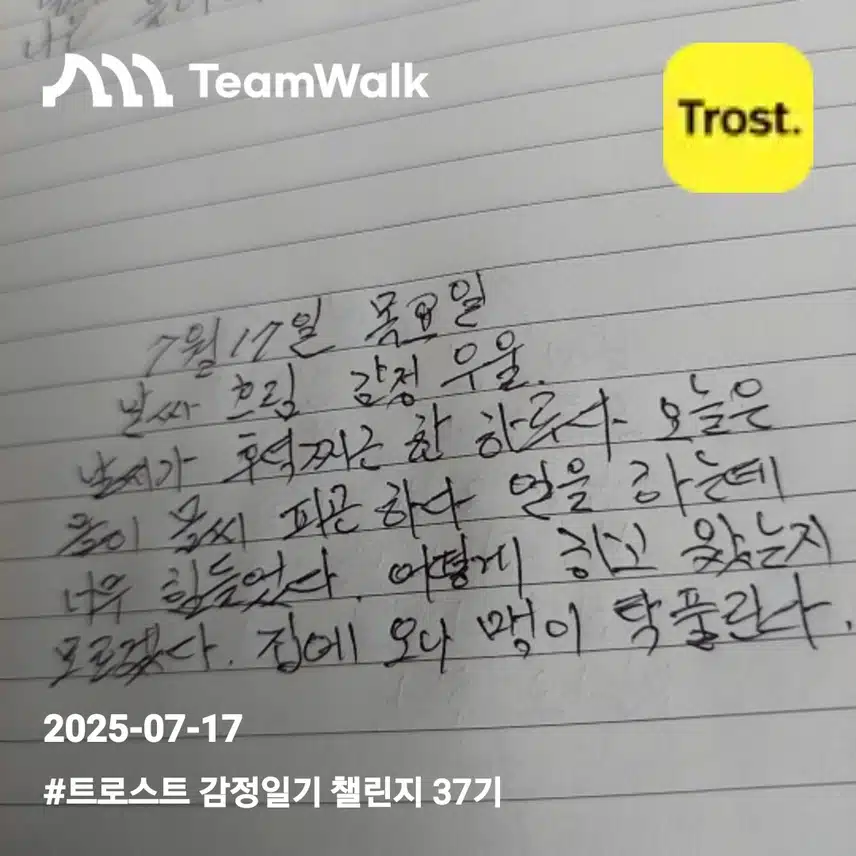 나는
TeamWalk
Trost.
7월 17일 목요일
날씨 흐림 감정 우울.
날씨가 후덕찌근 한 하루다 오늘은
몸이 몹씨 피곤하다 일을 하는데
너무 힘들었다. 어떻게 하고 왔는지
모르겠다. 집에 오니 맥이 탁풀린다.
2025-07-17
#트로스트 감정일기 챌린지 37기